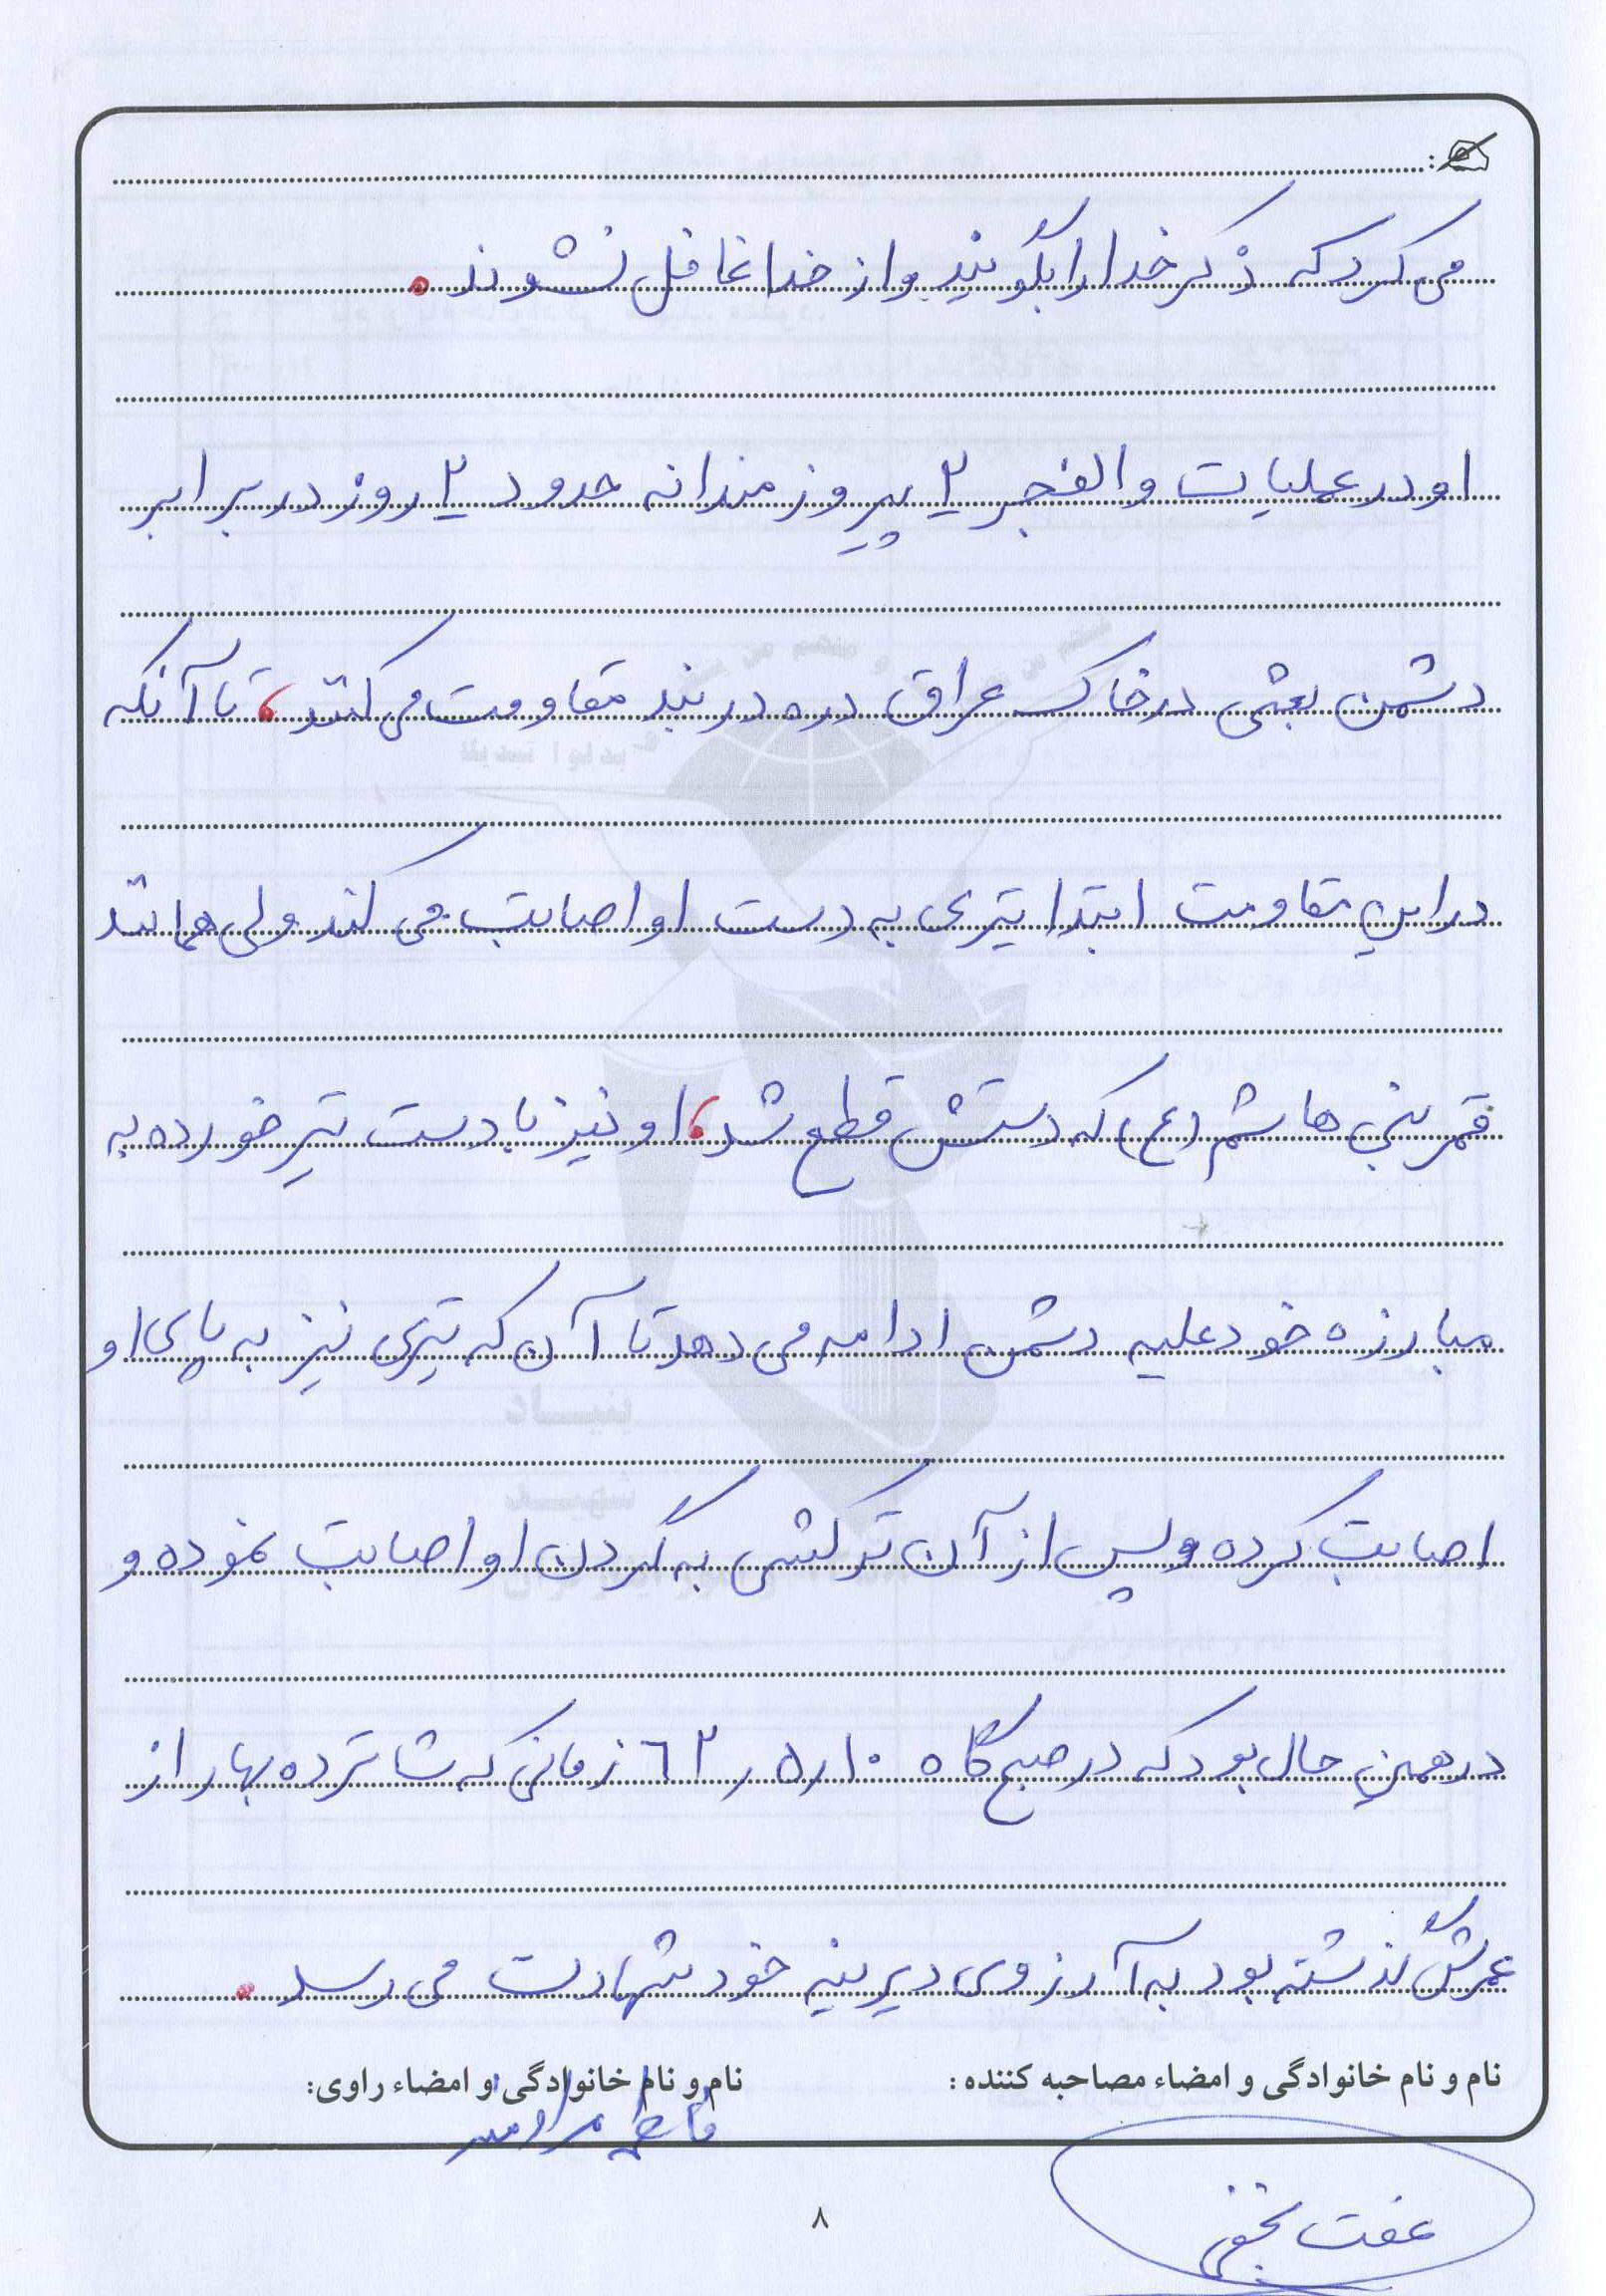 می کرد که ذکر خدا را بگویند و از خدا غافل نشوند.
او در عملیات والفجر ۲ پیروزمندانه حدود ۲ روز در برابر
دشمن بعثی در خاک عراق دره دربند مقاومت می کند، تا آنکه
در این مقاومت ابتدا تیری به دست او اصابت می کند ولی همانند
قمر بنی هاشم (ع) که دستش قطع شد، او نیز با دست تیر خورده به
مبارزه خود علیه دشمن ادامه می دهد تا آن که تیری نیز به پای او
اصابت کرده و پس از آن ترکشی به گردن او اصابت نموده و
در همین حال بود که در صبح گاه ۱۰ ر ۵ ر ۶۲ زمانی که شانزده بهار از
عمرش گذشته بود به آرزوی دیرینه خود شهادت می رسد.
نام و نام خانوادگی و امضاء مصاحبه کننده: نام و نام خانوادگی و امضاء راوی:
فاطمه
عفت نجفی
۸